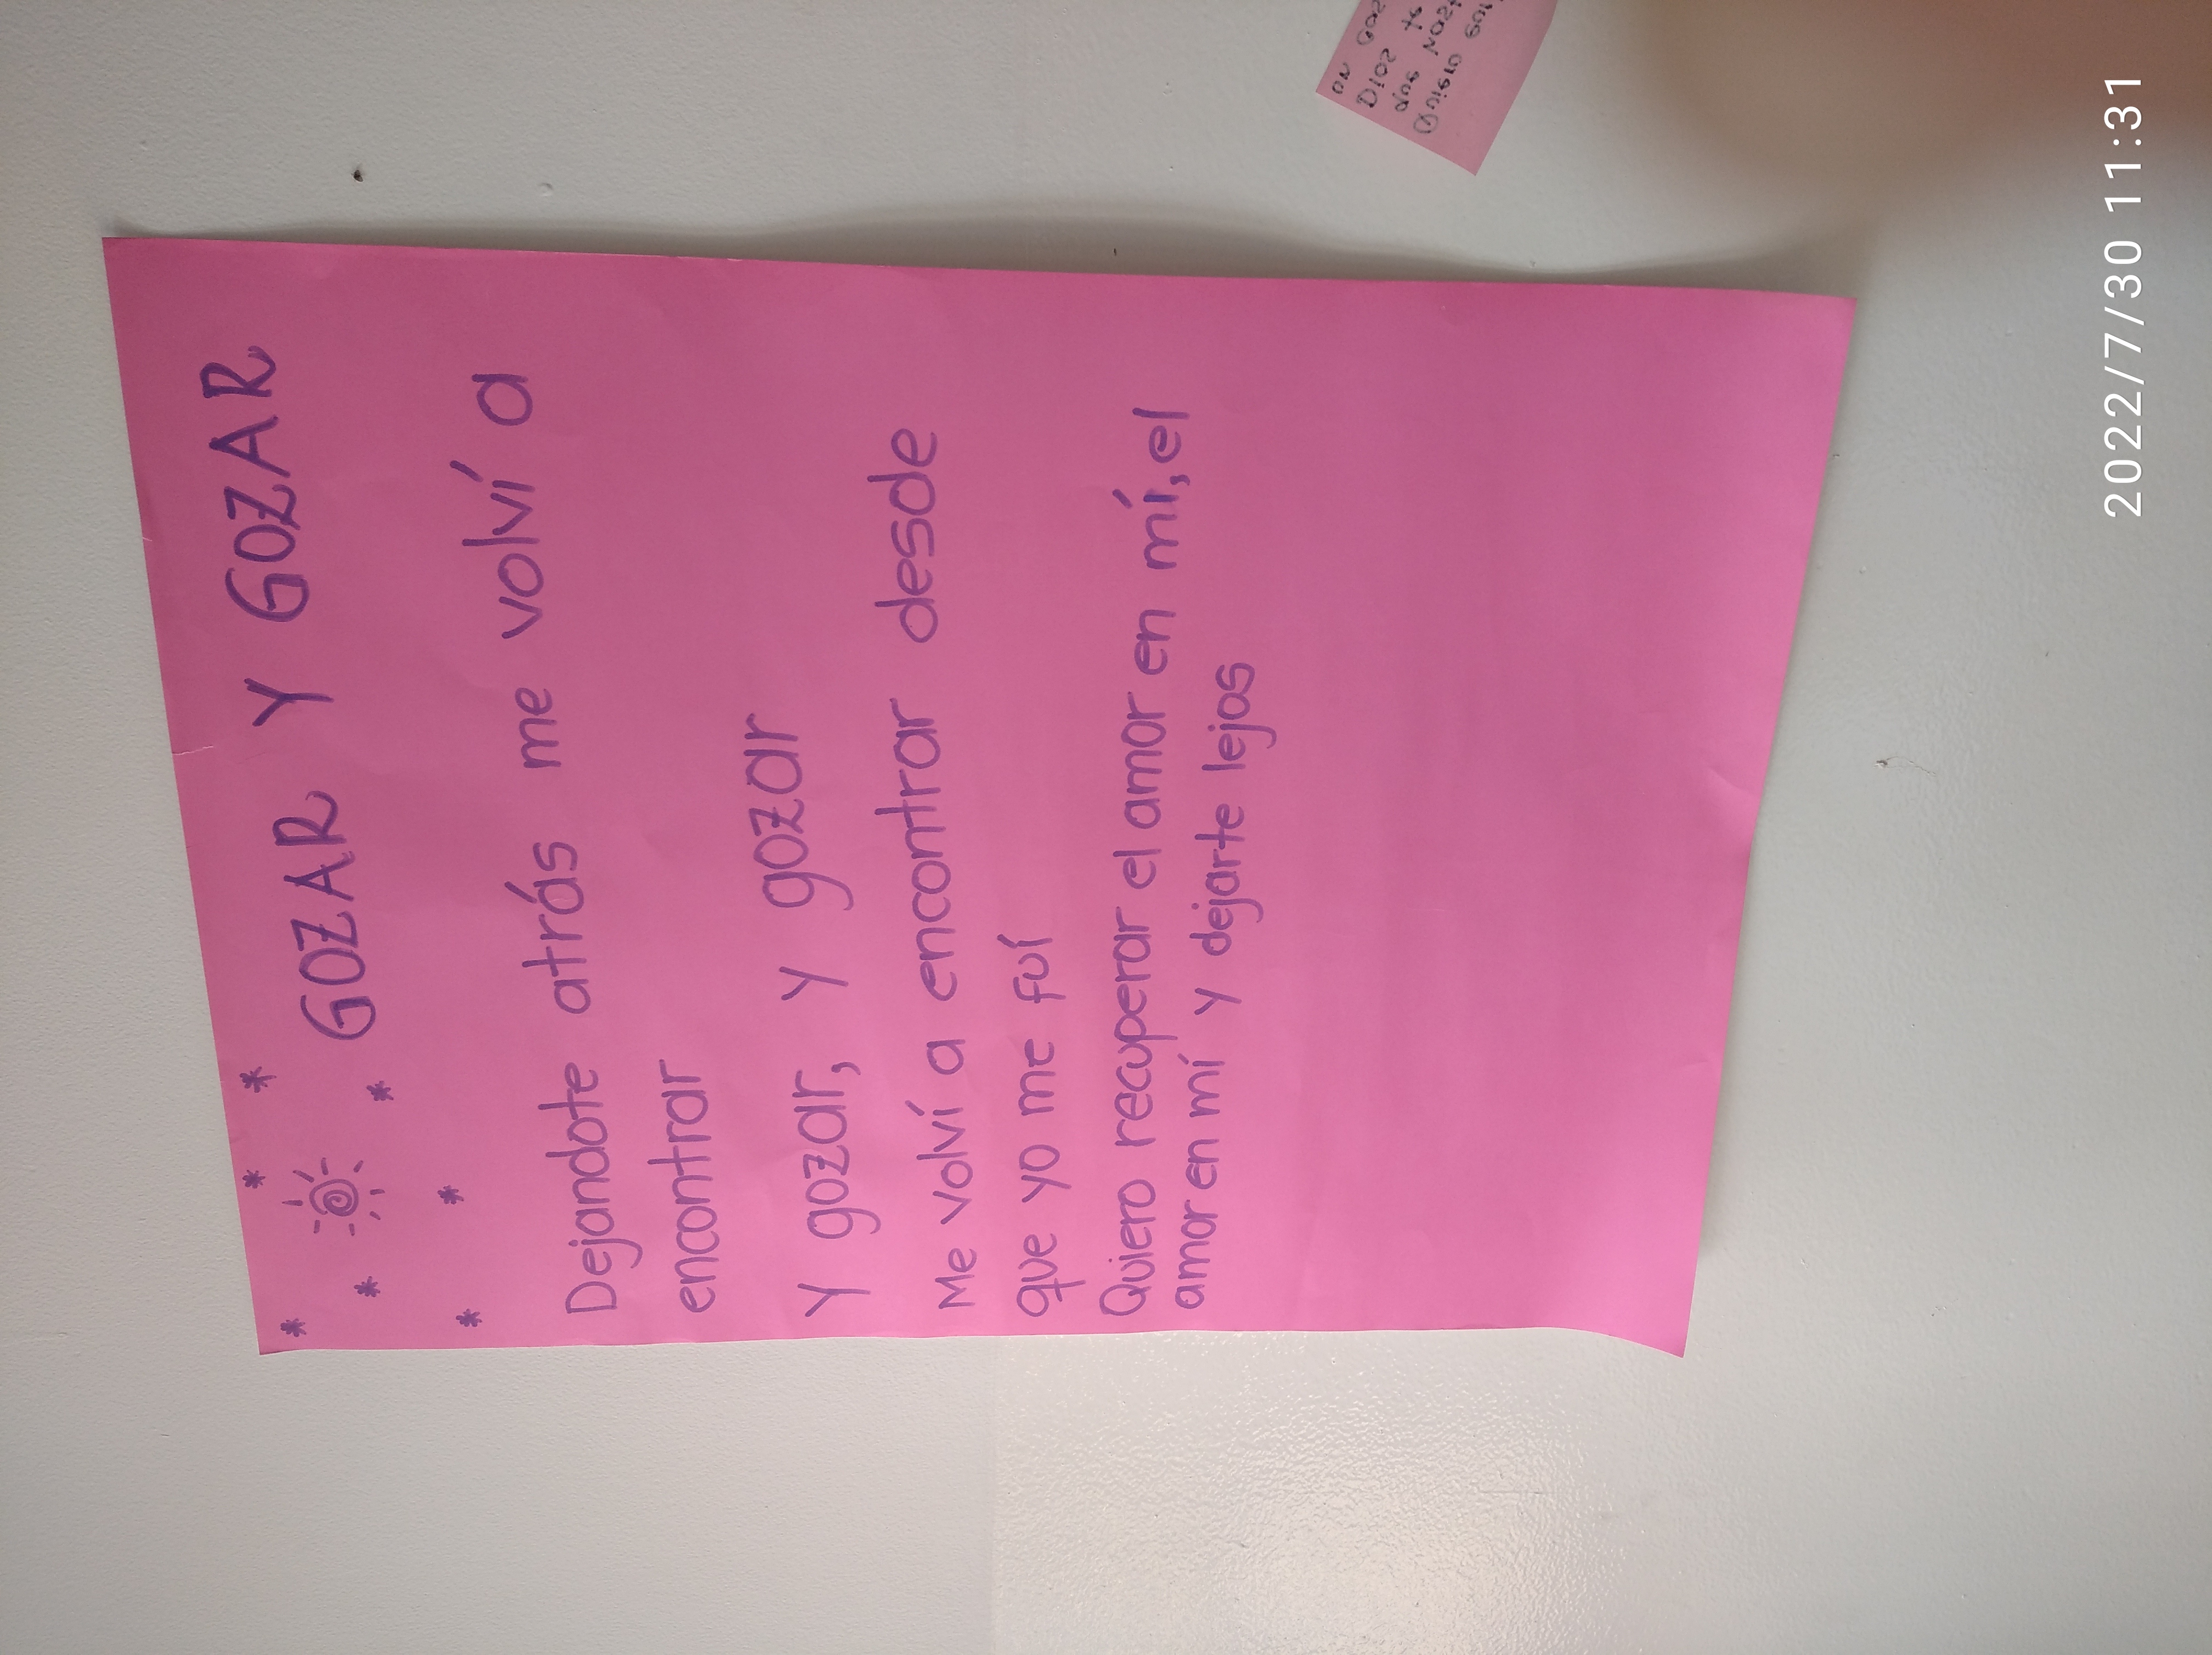 GOZAR Y GOZAR
Dejandote atrás me volví a
encontrar
Y gozar, y gozar
Me volví a encontrar desde
que yo me fuí
Quiero recuperar el amor en mí, el
amor en mí y dejarte lejos
2022/7/30 11:31